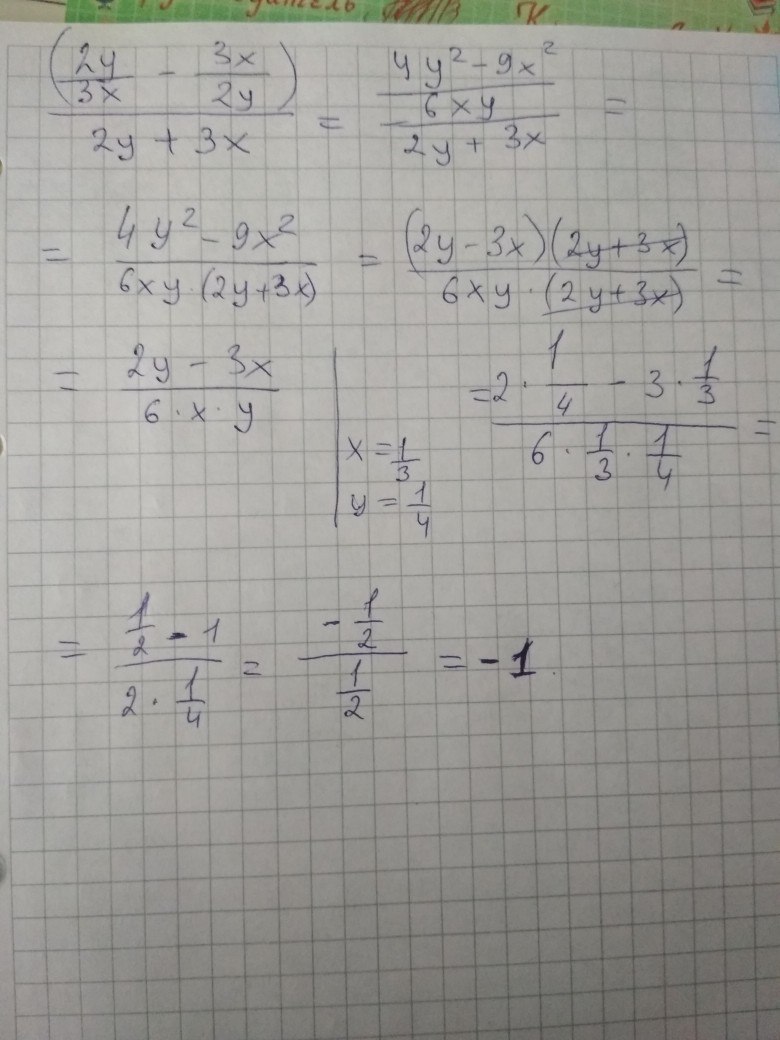 (2y/3x - 3x/2y) / 2y + 3x = 4y² - 9x² / 6xy / 2y + 3x =
= 4y² - 9x² / 6xy · (2y + 3x) = (2y - 3x)(2y + 3x) / 6xy · (2y + 3x) =
= 2y - 3x / 6 · x · y | x = 1/3 y = 1/4 = 2 · 1/4 - 3 · 1/3 / 6 · 1/3 · 1/4 =
= 1/2 - 1 / 2 · 1/4 = - 1/2 / 1/2 = - 1